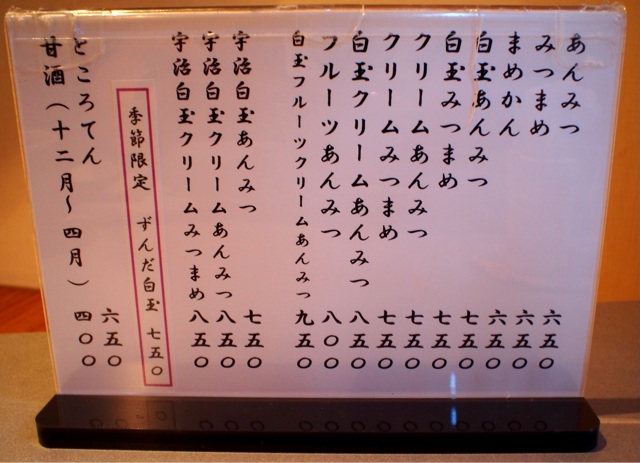 あんみつ 六五〇
みつまめ 六五〇
まめかん 六五〇
白玉あんみつ 七五〇
白玉みつまめ 七五〇
クリームあんみつ 七五〇
クリームみつまめ 七五〇
白玉クリームあんみつ 八五〇
フルーツあんみつ 八〇〇
白玉フルーツクリームあんみつ 九五〇
宇治白玉あんみつ 七五〇
宇治白玉クリームあんみつ 八五〇
宇治白玉クリームみつまめ 八五〇
季節限定 ずんだ白玉 七五〇
ところてん 六五〇
甘酒（十二月～四月） 四〇〇